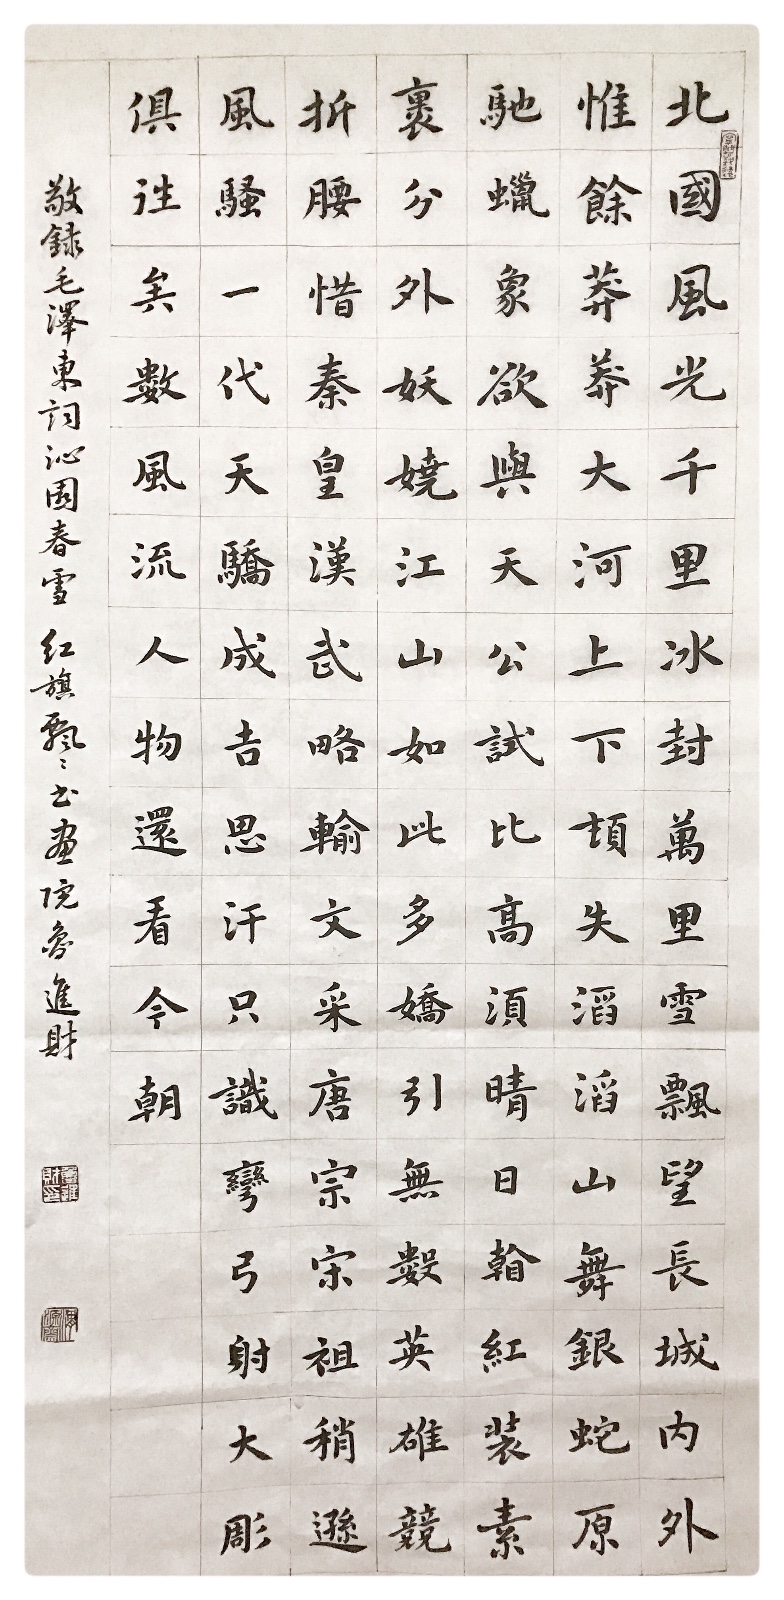 北國風光千里冰封萬里雪飄望長城内外
惟餘莽莽大河上下頓失滔滔山舞銀蛇原
馳蠟象欲與天公試比高須晴日翰紅装素
裹分外妖嬈江山如此多嬌引無數英雄競
折腰惜秦皇漢武略輸文采唐宗宋祖稍遜
風騷一代天驕成吉思汗只識彎弓射大彫
俱往矣數風流人物還看今朝
敬録毛澤東詞沁園春雪 红旗飄々书画院魯進財